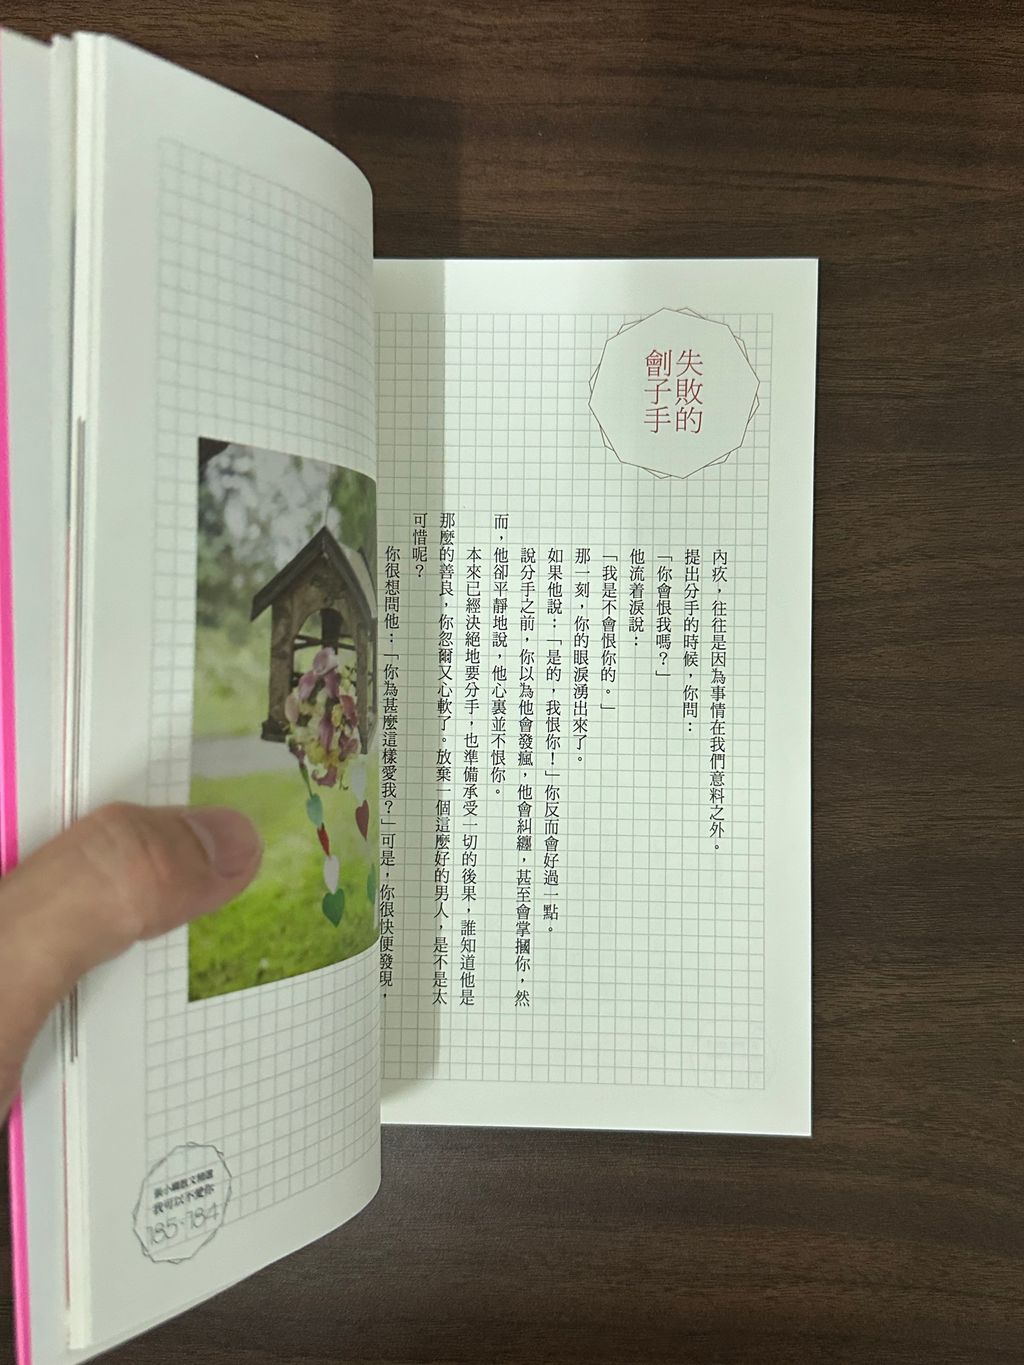 失敗的
劊子手
內疚，往往是因為事情在我們意料之外。
提出分手的時候，你問：
「你會恨我嗎？」
他流着淚說：
「我是不會恨你的。」
那一刻，你的眼淚湧出來了。
如果他說：「是的，我恨你！」你反而會好過一點。
說分手之前，你以為他會發瘋，他會糾纏，甚至會掌摑你，然
而，他卻平靜地說，他心裏並不恨你。
本來已經決絕地要分手，也準備承受一切的後果，誰知道他是
那麼的善良，你忽爾又心軟了。放棄一個這麼好的男人，是不是太
可惜呢？
你很想問他：「你為甚麼這樣愛我？」可是，你很快便發現，
張小嫻散文精選
我可以不愛你
185·184